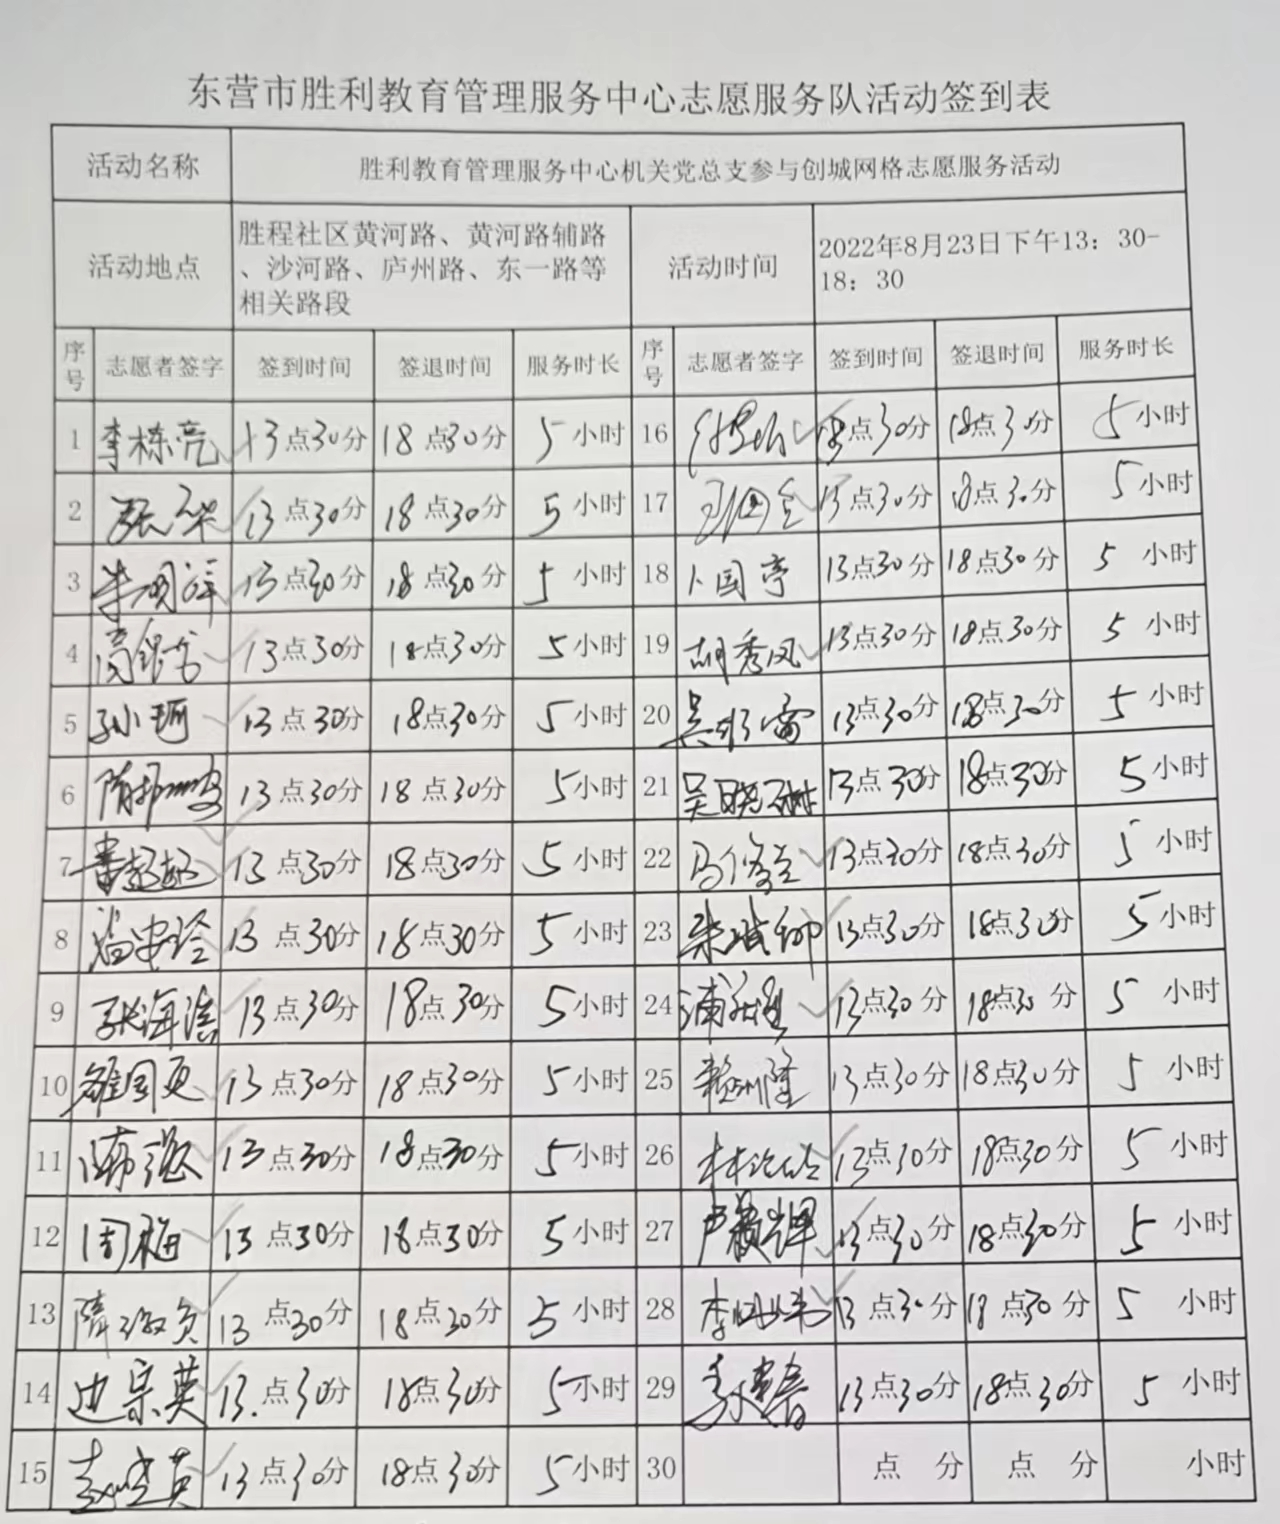 东营市胜利教育管理服务中心志愿服务队活动签到表
活动名称 胜利教育管理服务中心机关党总支参与创城网格志愿服务活动
活动地点 胜程社区黄河路、黄河路辅路
、沙河路、庐州路、东一路等
相关路段
活动时间 2022年8月23日下午13：30-
18：30
序号 志愿者签字 签到时间 签退时间 服务时长 序号 志愿者签字 签到时间 签退时间 服务时长
1 李栋亮 13点30分 18点30分 5小时 16 18点30分 18点30分 5小时
2 13点30分 18点30分 5小时 17 13点30分 18点30分 5小时
3 13点30分 18点30分 5小时 18 卜国亭 13点30分 18点30分 5小时
4 13点30分 18点30分 5小时 19 胡秀风 13点30分 18点30分 5小时
5 孙珂 13点30分 18点30分 5小时 20 13点30分 18点30分 5小时
6 13点30分 18点30分 5小时 21 13点30分 18点30分 5小时
7 13点30分 18点30分 5小时 22 13点30分 18点30分 5小时
8 13点30分 18点30分 5小时 23 13点30分 18点30分 5小时
9 张海滨 13点30分 18点30分 5小时 24 13点30分 18点30分 5小时
10 13点30分 18点30分 5小时 25 13点30分 18点30分 5小时
11 13点30分 18点30分 5小时 26 13点30分 18点30分 5小时
12 周梅 13点30分 18点30分 5小时 27 13点30分 18点30分 5小时
13 13点30分 18点30分 5小时 28 13点30分 18点30分 5小时
14 边宗英 13点30分 18点30分 5小时 29 13点30分 18点30分 5小时
15 13点30分 18点30分 5小时 30 点 分 点 分 小时